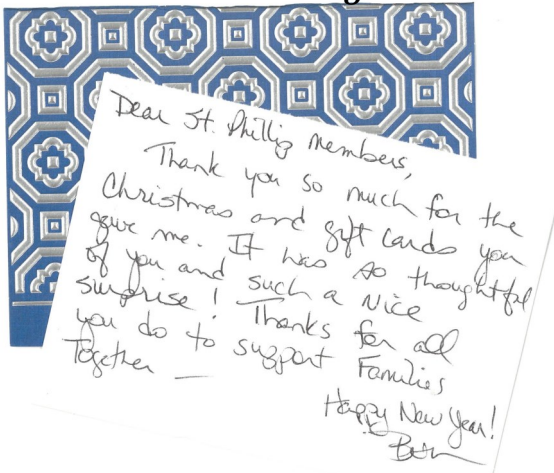 Dear St. Phillip members,
Thank you so much for the
Christmas and gift cards you
gave me. It was so thoughtful
of you and such a nice
surprise! Thanks for all
you do to support Families
Together —
Happy New Year!